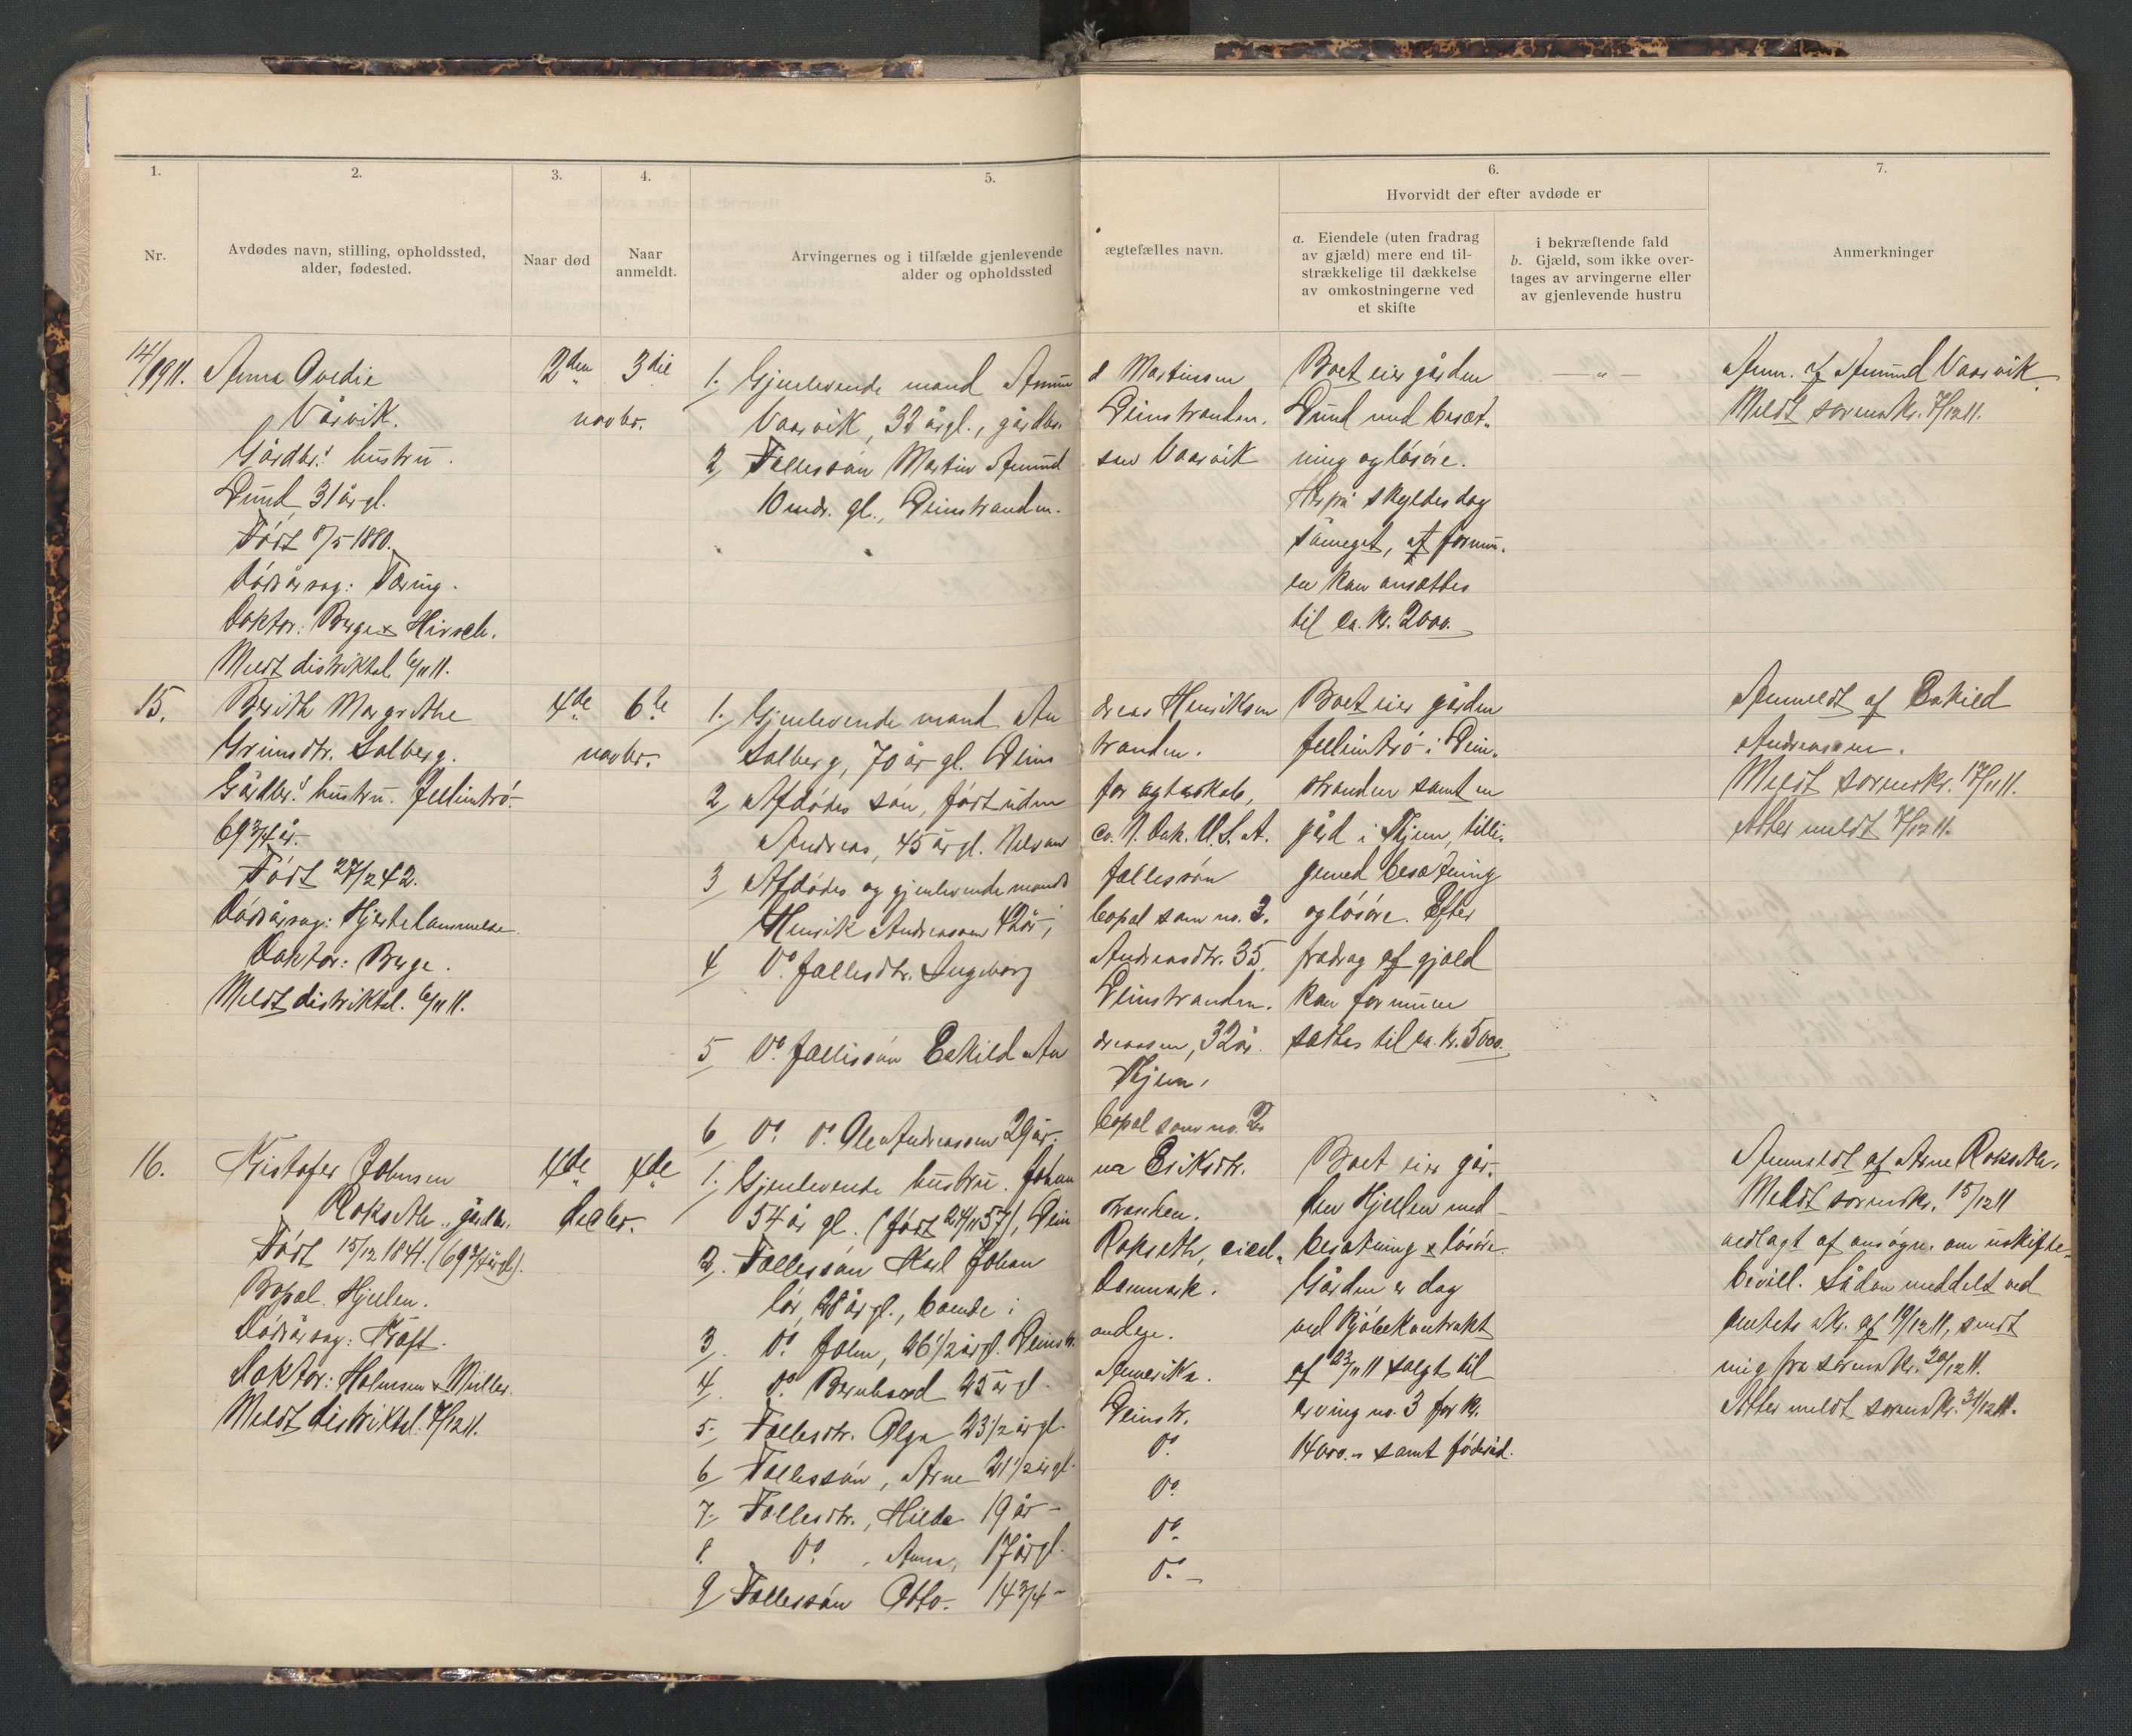 1.
2.
3.
4.
5.
6.
7.
Nr.
Avdødes navn, stilling, opholdssted,
alder, fødested.
Naar død
Naar
anmeldt.
Arvingernes og i tilfælde gjenlevende ægtefælles navn.
alder og opholdssted
Hvorvidt der efter avdøde er
a. Eiendele (uten fradrag
av gjæld) mere end til-
strækkelige til dækkelse
av omkostningerne ved
et skifte
i bekræftende fald
b. Gjæld, som ikke over-
tages av arvingerne eller
av gjenlevende hustru
Anmerkninger
14/1911.
Anna Ovedie
Vårvik.
Gårdbr.s hustru.
Dund, 31 år gl.
Født 8/5 1880.
Dødsårsag: Tæring.
Doktor: Berge & Hirsch.
Meldt distriktsl. 6/11 11.
2den
novbr.
3die
1. Gjenlevende mand Amund Martinsen
Vaarvik, 33 år gl., gårdbr. Leinstranden.
2, Fællessøn Martin Amundsen Vaarvik
10 mdr. gl., Leinstranden.
Boet eier gården
Dund med besæt-
ning og løsøre.
Herpå skyldes dog
såmeget, at formu-
en kan ansættes
til ca. kr. 2000.
— " —
Anm. af Amund Vaarvik
Meldt sorenskr. 7/12 11.
15.
Berith Margrethe
Grimsdtr. Solberg.
Gårdbr.s hustru. Jellimtrø.
69 3/4 år.
Født 27/2 42.
Dødsårsag: Hjertelammelse.
Doktor: Berge.
Meldt distriktsl. 6/11 11.
4de
novbr.
6te
1. Gjenlevende mand Andreas Henriksen
Solberg, 70 år gl. Leinstranden.
2, Afdødes søn, født uden for ægteskab,
Andreas, 45 år gl. Co. N. Dak. U.S.A.
3 Afdødes og gjenlevende mands fællessøn
Henrik Andreassen 42 år, bopæl som no. 2.
4, Do. fællesdtr. Ingeborg Andreasdtr. 35,
Leinstranden.
5, Do. fællessøn Eskild Andreassen, 32 år.
Skjem,
6, Do. Do. Ole Andreassen 29 år. bopæl som no. 2
Boet eier gården
Jellimtrø i Lein-
stranden samt en
gård i Skjem, tilli-
gemed besætning
og løsøre. Efter
fradrag af gjæld
kan formuen
sættes til ca. kr. 5000.
Anmeldt af Eskild
Andreassen.
Meldt sorenskr. 17/11 11.
Atter meldt 7/12 11.
16.
Kristofer Johnsen
Rokseth, gårdbr.
Født 15/12 1841. (69 3/4 år gl).
Bopæl. Hjellen.
Dødsårsag: Kræft.
Doktor: Holmsen & Müller.
Meldt distriktsl. 7/12 11.
4de
decbr.
4de
1. Gjenlevende hustru. Johanna Eriksdtr.
54 år gl. (født 24/11 57), Leinstranden.
2. Fællessøn Karl Johan Rokseth,
28 år gl., boende i Danmark.
3, Do. John, 26 1/2 år gl. Leinstr.
4, Do. Bernhard 25 år gl. Amerika.
5. Fællesdtr. Olga 23 1/2 år gl. Leinstr.
6 Fællessøn, Arne 21 1/2 år gl. Do.
7. Fællesdtr., Hilda 19 år – Do.
8. Do. , Anna, 17 år gl. Do.
9 Fællessøn Otto. 14 3/4 – Do. –
Boet eier går-
den Hjellen med
besætning & løsøre.
Gården er dog
ved kjøbekontrakt
af 23/11 11 solgt til
arving no. 3 for kr.
14000.– samt føderåd.
Anmeldt af Arne Rokseth.
Meldt sorenskr. 15/12 11
vedlagt af ansøgn. om uskifte-
bevill. Sådan meddelt ved
amtets skr. af 19/12 11, sendt
mig fra sorenskr. 20/12 11.
Atter meldt sorenskr. 31/12 11.